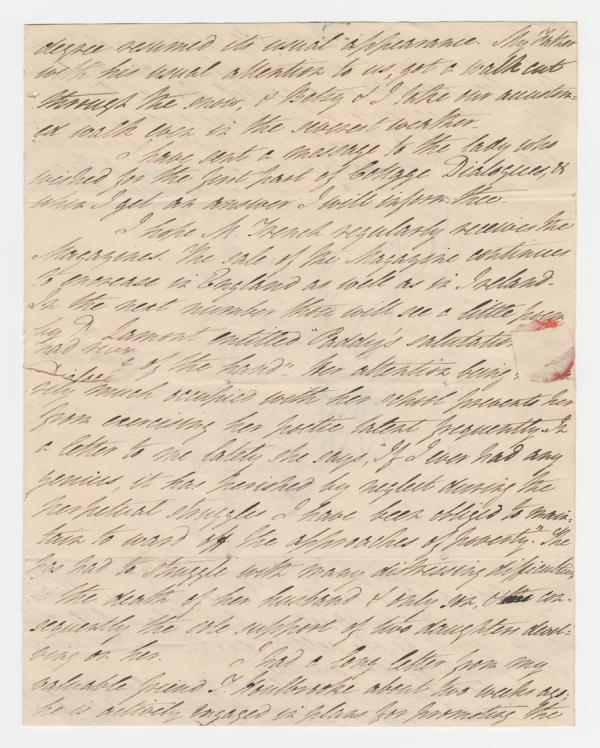 degree resumed its usual appearance. My Father
with his usual attention to us, got a walk cut
through the snow, & Betsy & I take our accustom-
ed walk even in the severest weather.
I have sent a message to the lady who
wished for the first part of Cottage Dialogues, &
when I get an answer I will inform thee.
I hope M. French regularly receives the
Magazines. The sale of the Magazine continues
to encrease in England as well as in Ireland.
In the next number thou will see a little
by Lamont entitled "Paddy's salutation
of the hand" her attention being
very much occupied with her school prevents her
from exercising her poetic talent frequently. In
a letter to me lately she says, "If I ever had any
genius, it has perished by neglect during the
perpetual struggles I have been obliged to main-
tain to ward off the approaches of poverty". She
has had to struggle with many distressing difficulties
the death of her husband & only son, & con-
sequently the sole support of two daughters devol-
ving on her. I had a long letter from my
valuable friend T. Houlbrooke about two weeks ago;
he is actively engaged in plans for promoting the